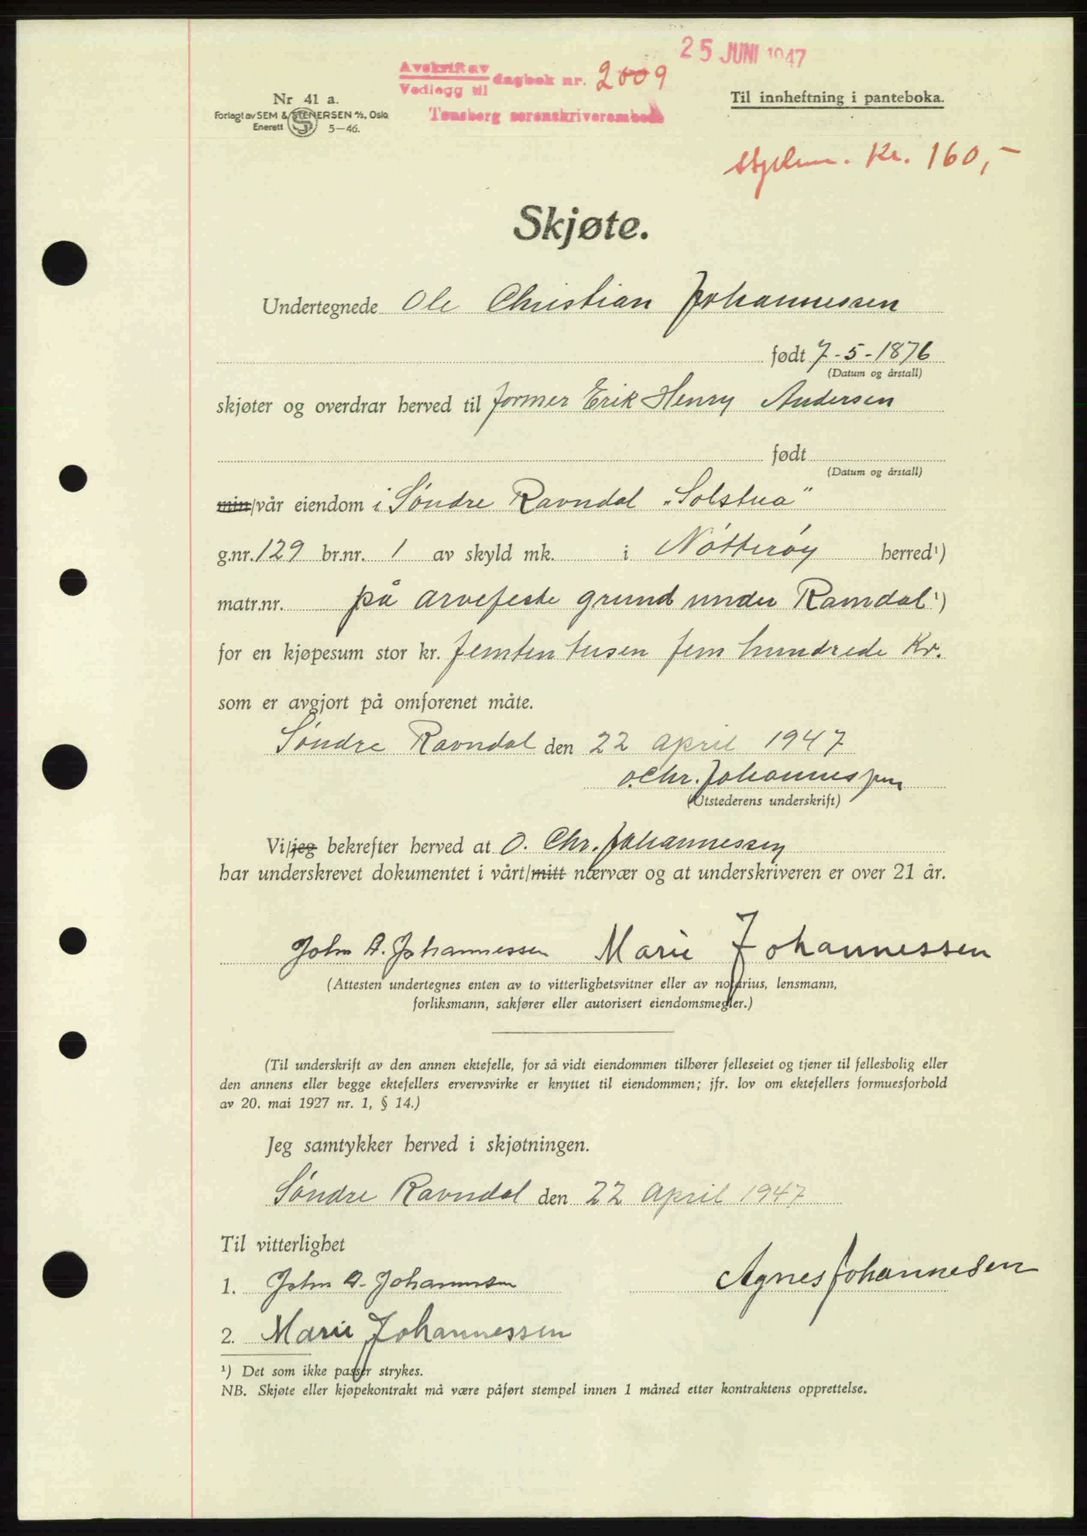 25 JUNI 1947
Avskrift av
Vedlegg til dagbok nr. 2009
Tønsberg sorenskriverembede
Nr 41 a.
Forlagt av SEM & STENERSEN A/S, Oslo
Enerett S 5—46.
Til innheftning i panteboka.
Kr. 160,-
Skjøte.
Undertegnede Ole Christian Johannessen
født 7-5-1876
(Datum og årstall)
skjøter og overdrar herved til former Erik Henry Andersen
født
(Datum og årstall)
min/vår eiendom i Søndre Ravndal „Solstua”
g.nr. 129 br.nr. 1 av skyld mk. i Nøtterøy herred¹)
matr.nr. på arvefeste grund under Ravndal ¹)
for en kjøpesum stor kr. femten tusen fem hundrede Kr.
som er avgjort på omforenet måte.
Søndre Ravndal den 22 april 1947
O.Chr. Johannessen
(Utstederens underskrift)
Vi/jeg bekrefter herved at O. Chr. Johannessen
har underskrevet dokumentet i vårt/mitt nærvær og at underskriveren er over 21 år.
John A. Johannessen Marie Johannessen
(Attesten undertegnes enten av to vitterlighetsvitner eller av notarius, lensmann,
forliksmann, sakfører eller autorisert eiendomsmegler.)
(Til underskrift av den annen ektefelle, for så vidt eiendommen tilhører felleseiet og tjener til fellesbolig eller
den annens eller begge ektefellers ervervsvirke er knyttet til eiendommen; jfr. lov om ektefellers formuesforhold
av 20. mai 1927 nr. 1, § 14.)
Jeg samtykker herved i skjøtningen.
Søndre Ravndal den 22 april 1947
Til vitterlighet
1. John A. Johannessen Agnes Johannesen
2. Marie Johannessen
¹) Det som ikke passer strykes.
NB. Skjøte eller kjøpekontrakt må være påført stempel innen 1 måned etter kontraktens opprettelse.